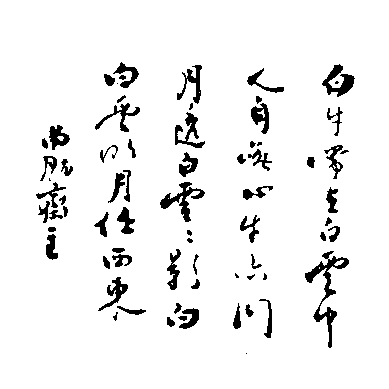 白牛常在白雲中
人自無心牛亦同
月透白雲々影白
白雲明月任西東
齋主